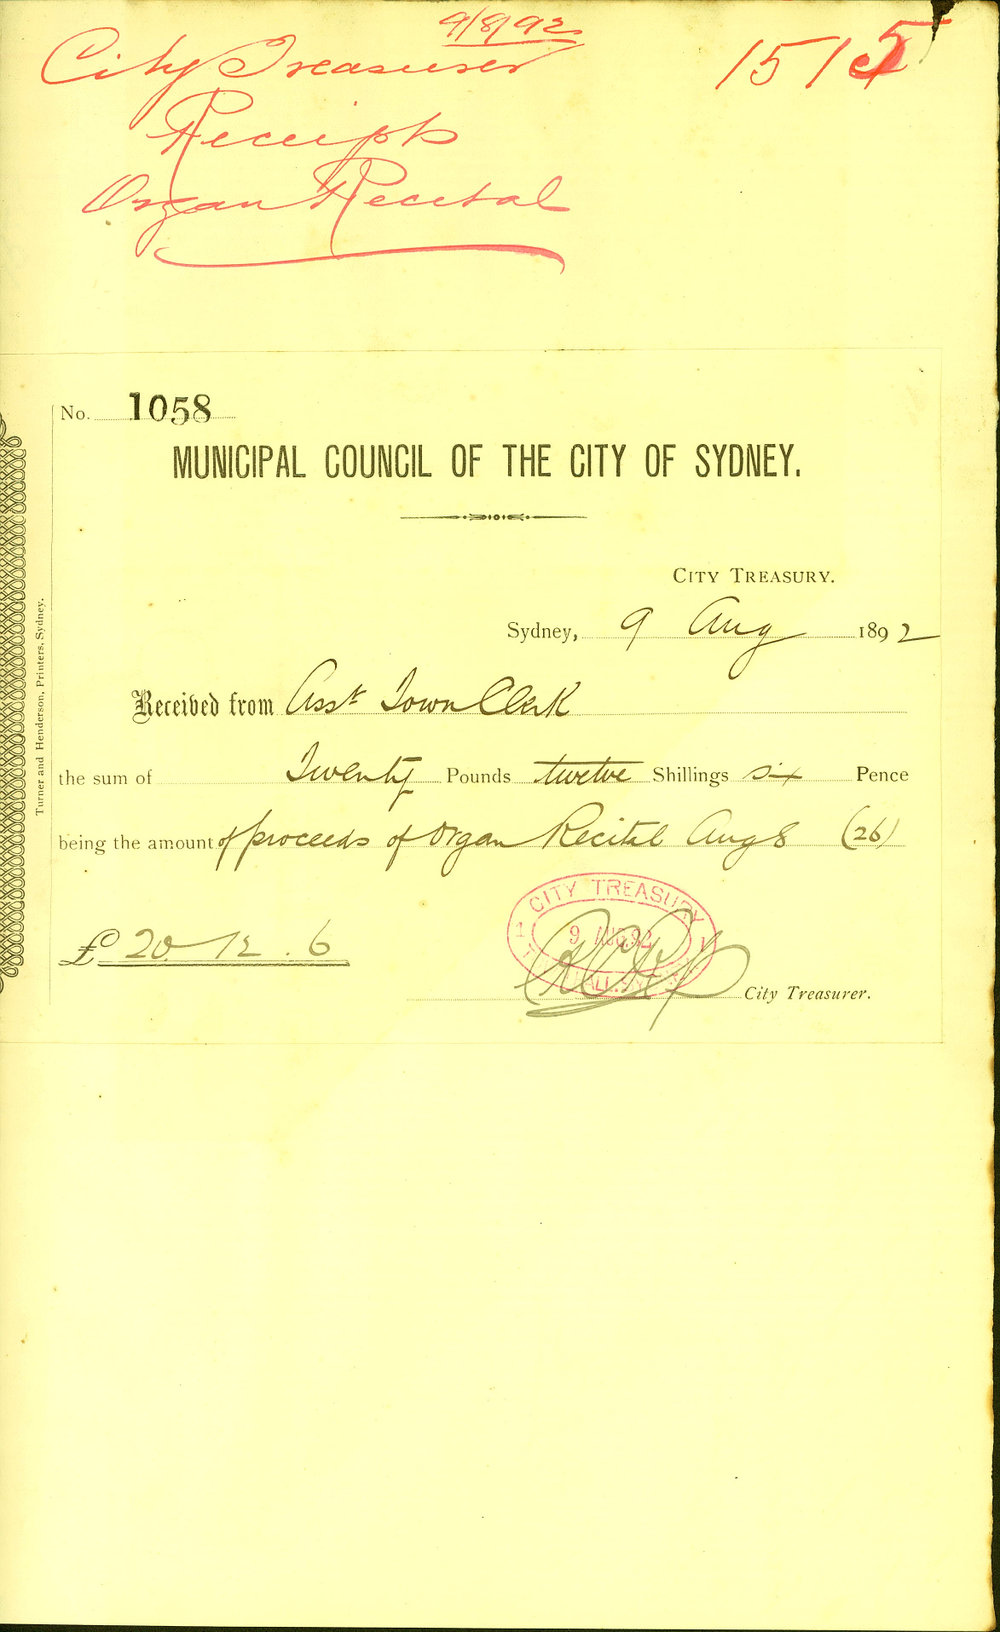 9/8/92
City Treasurer
1515
Receipts
Organ Recital
No. 1058
MUNICIPAL COUNCIL OF THE CITY OF SYDNEY.
CITY TREASURY.
Sydney, 9 Aug 1892
Received from Asst Town Clerk
the sum of Twenty Pounds twelve Shillings six Pence
being the amount of proceeds of Organ Recital Aug 8 (26)
£20 12 . 6
CITY TREASURY
1 9 AUG.92 1
City Treasurer.
Turner and Henderson, Printers, Sydney.